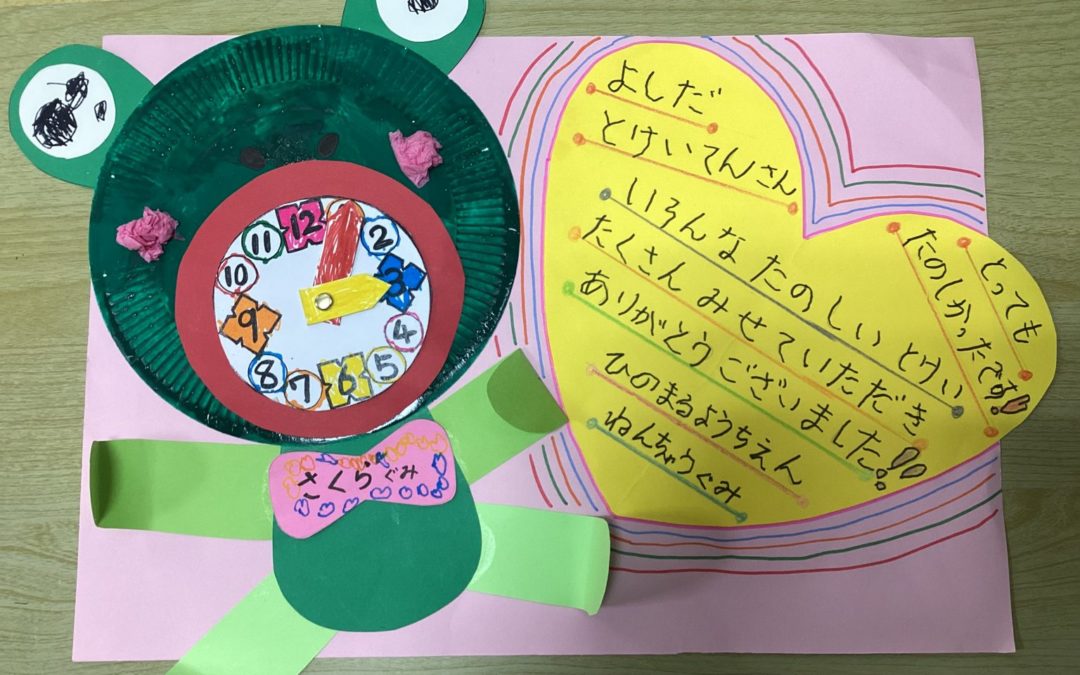 よしだ
とけいてんさん
いろんなたのしいとけい
たくさんみせていただき
ありがとうございました。!!
ひのまるようちえん
ねんちゅうぐみ
とっても
たのしかったです。
さくらぐみ
12
2
3
4
5
6
7
8
9
10
11